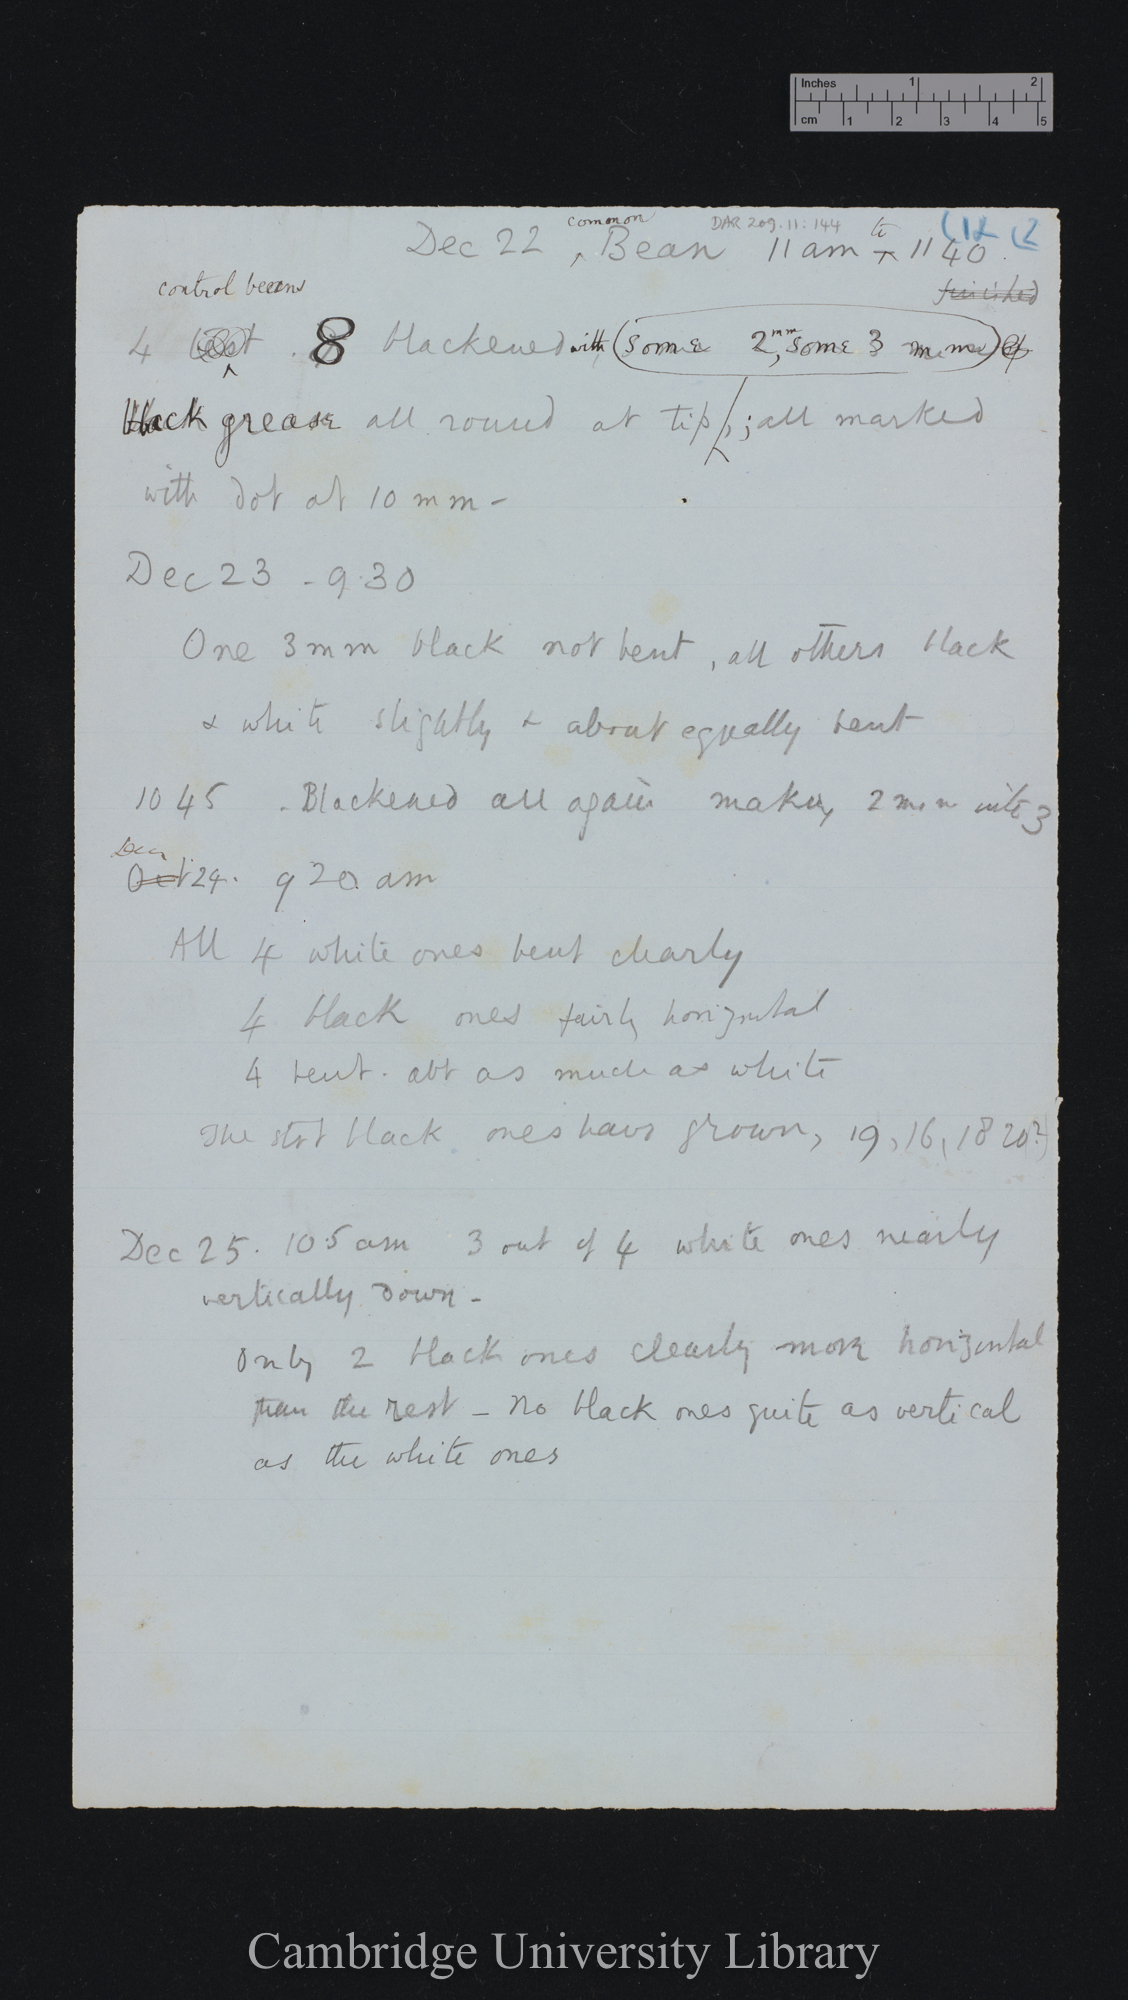 Inches 1 2
cm 1 2 3 4 5
DAR 209.11:144
(12 (2
common
Dec 22 ‸ Bean 11 am to 11 40
finished
control beans
4 test . 8 blackened with (some 2 mm, some 3 mm) of
black grease all round at tip / ; all marked
with dot at 10 mm –
Dec 23 - 9.30
One 3 mm black not bent, all others black
& white slightly & about equally bent
10 45 . Blackened all again making 2 mm into 3
Dec
Oct 24. 9 20 am
All 4 white ones bent clearly
4 black ones fairly horizontal
4 bent. abt as much as white
The str t black ones have grown, 19, 16, 18 20?)
Dec 25. 10.5 am 3 out of 4 white ones nearly
vertically down –
Only 2 black ones clearly more horizontal
than the rest – No black ones quite as vertical
as the white ones
Cambridge University Library